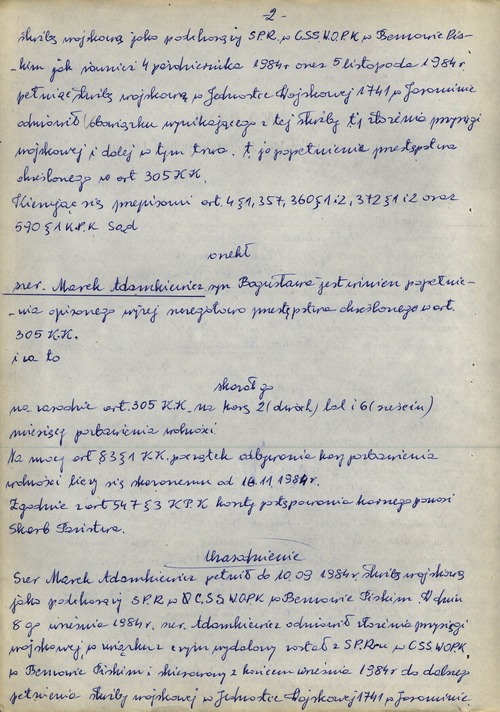 - 2 -
służbę wojskową jako podchorąży S.P.R. w C.S.S. W.O.P.K. w Bemowie Pis-
-kim jak również 4 października 1984 r oraz 5 listopada 1984 r.
pełniąc służbę wojskową w Jednostce Wojskowej 1741 w Jarominie
odmówił obowiązku wynikającego z tej służby tj. złożenia przysięgi
wojskowej i dalej w tym trwa. t. j. o popełnienie przestępstwa
określonego w art 305 K.K.
Kierując się przepisami art. 4 § 1, 357, 360 § 1 i 2, 372 § 1 i 2 oraz
590 § 1 K.P.K Sąd
orzekł
szer. Marek Adamkiewicz syn Bogusława jest winien popełnie-
-nia opisanego wyżej szczegółowo przestępstwa określonego w art.
305 K.K.
i za to
skazał go
na zasadzie art. 305 K.K. na karę 2 (dwóch) lat i 6 (sześciu)
miesięcy pozbawienia wolności.
Na mocy art 83 § 1 K.K. początek odbywania kary pozbawienia
wolności liczy się skazanemu od 16.11.1984 r.
Zgodnie z art 547 § 3 K.P.K koszty postępowania karnego ponosi
Skarb Państwa.
Uzasadnienie
Szer Marek Adamkiewicz pełnił do 10.09 1984 r. służbę wojskową
jako podchorąży S.P.R. w C.S.S W.O.P.K w Bemowie Piskim. W dniu
8 go września 1984 r. szer. Adamkiewicz odmówił złożenia przysięgi
wojskowej, w związku z czym wydalony został z S.P.R-u w C.S.S W.O.P.K.
w Bemowie Piskim i skierowany z końcem września 1984 r do dalszego
pełnienia służby wojskowej w Jednostce Wojskowej 1741 w Jarominie.